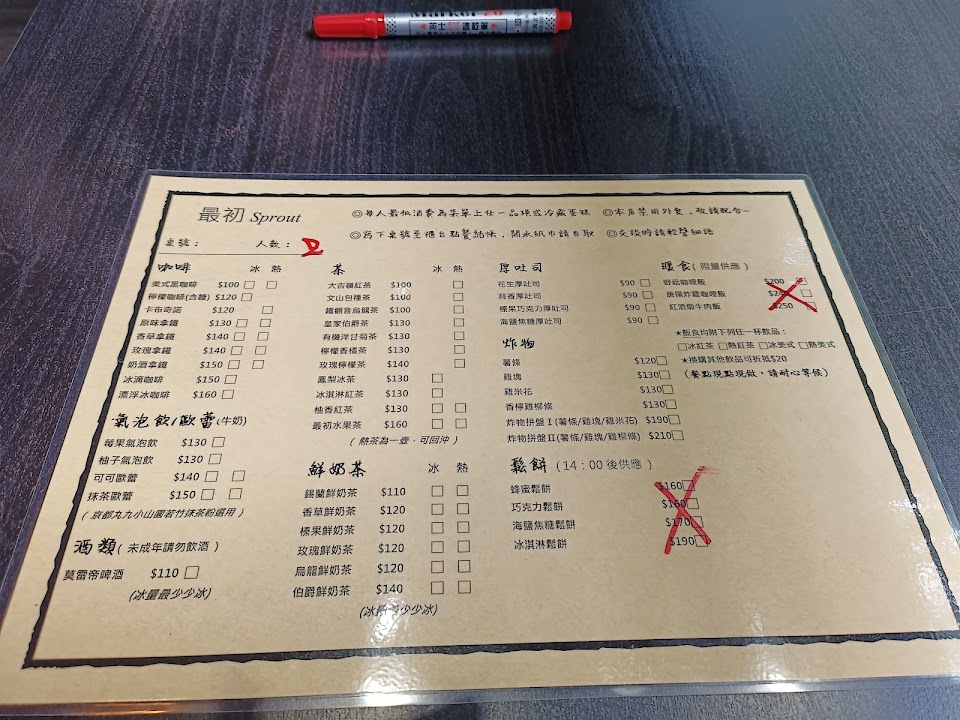 最初 Sprout
◎每人最低消費為菜單上任一品項或冷藏蛋糕 ◎本店禁用外食,敬請配合~
◎寫下桌號至櫃台點餐結帳,開水紙巾請自取 ◎交談時請輕聲細語
桌號: 人數: 2
咖啡 冰 熱
美式黑咖啡 $100
檸檬咖啡(含糖) $120
卡布奇諾 $120
原味拿鐵 $130
香草拿鐵 $140
玫瑰拿鐵 $140
奶酒拿鐵 $150
冰滴咖啡 $150
漂浮冰咖啡 $160
氣泡飲/歐蕾(牛奶)
莓果氣泡飲 $130
柚子氣泡飲 $130
可可歐蕾 $140
抹茶歐蕾 $150
(京都丸久小山園若竹抹茶粉選用)
酒類(未成年請勿飲酒)
莫雷帝啤酒 $110
(冰量最少少冰)
茶 冰 熱
大吉嶺紅茶 $100
文山包種茶 $100
鐵觀音烏龍茶 $100
皇家伯爵茶 $130
有機洋甘菊茶 $130
檸檬香橘茶 $130
玫瑰檸檬茶 $140
鳳梨冰茶 $130
冰淇淋紅茶 $130
柚香紅茶 $130
最初水果茶 $160
(熱茶為一壺,可回沖)
鮮奶茶 冰 熱
錫蘭鮮奶茶 $110
香草鮮奶茶 $120
榛果鮮奶茶 $120
玫瑰鮮奶茶 $120
烏龍鮮奶茶 $120
伯爵鮮奶茶 $140
(冰量最少少冰)
厚吐司
花生厚吐司 $90
蒜香厚吐司 $90
榛果巧克力厚吐司 $90
海鹽焦糖厚吐司 $90
炸物
薯條 $120
雞塊 $130
雞米花 $130
香檸雞柳條 $130
炸物拼盤 I (薯條/雞塊/雞米花) $190
炸物拼盤II (薯條/雞塊/雞柳條) $210
鬆餅 (14:00後供應)
蜂蜜鬆餅 $160
巧克力鬆餅 $160
海鹽焦糖鬆餅 $170
冰淇淋鬆餅 $190
暖食(限量供應)
野菇咖哩飯 $200
唐揚炸雞咖哩飯
紅酒燉牛肉飯 $250
★飯食均附下列任一杯飲品:
□冰紅茶 □熱紅茶 □冰美式 □熱美式
★換購其他飲品可折抵$20
(餐點現點現做,請耐心等候)